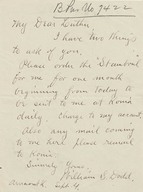 B. Pav. No 9422
My Dear Luther
I have two things
to ask of you.
Please order the "Standard"
for me for one month
beginning from today to
be sent to me at Rome
daily. Charge to my account.
Also any mail coming
to me here please remail
to Rome.
Sincerely Yours
William E. Dodd,
Sept. 4